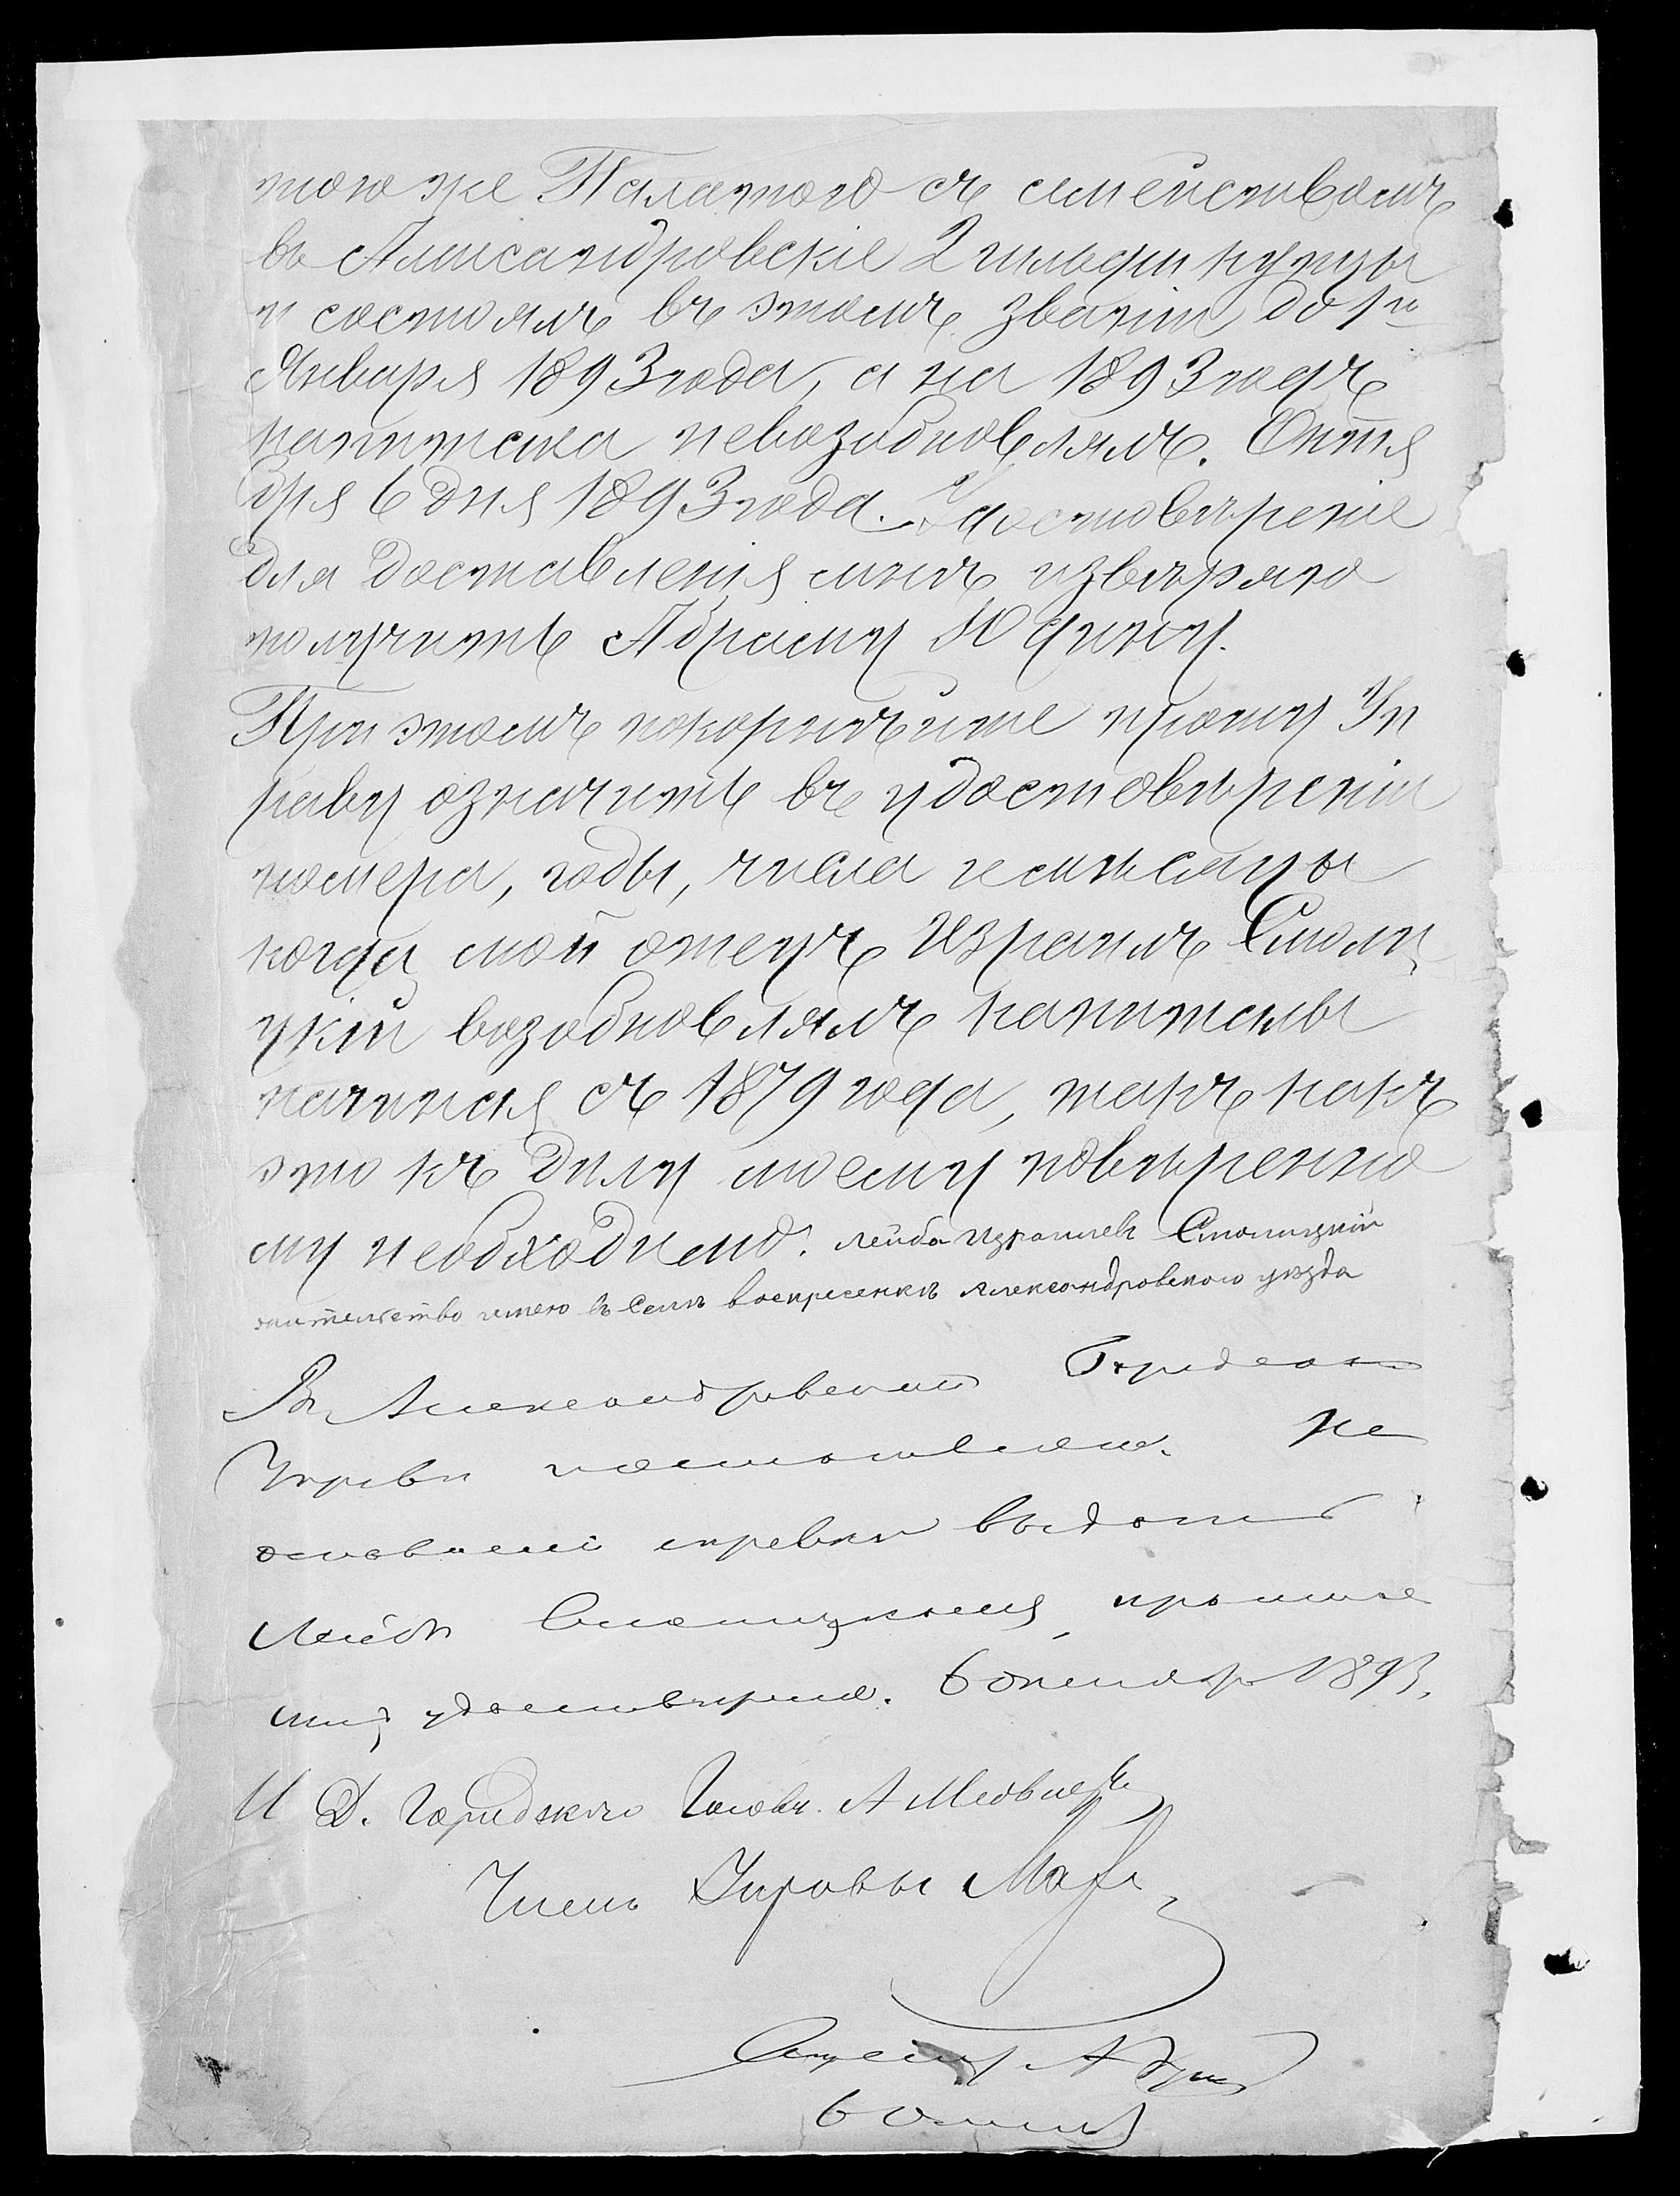 тою же Палатою съ семействомъ
въ Александровскіе 2 гильдіи купцы
и состоялъ въ этомъ званіи до 1го
Января 1893 года, а на 1893 годъ
капитала невозобновлялъ. Октя
бря 6 дня 1893 года. Удостовѣреніе
для доставленія мнѣ извѣряю
получить Абраму Юдину.
При этомъ покорнѣйше прошу Уп
раву означить въ удостовѣреніи
номера, годы, числа и мѣсяцы
когда мой отецъ Израиль Смоли
цкій возобновлялъ капиталы
начиная съ 1879 года, такъ какъ
это къ дѣлу моему повѣренно
му необходимо. Лейба Израилевъ Смолицкій
жительство имею въ Селѣ воскресенкѣ Александровского уезда
Въ Александровской Городской
Управѣ постановлено: На
основаніи справки выдать
Лейбѣ Смолицкому просимое
имъ удостовѣреніе. 6 октября 1893.
И Д. Городского Головы А
Членъ Управы
6